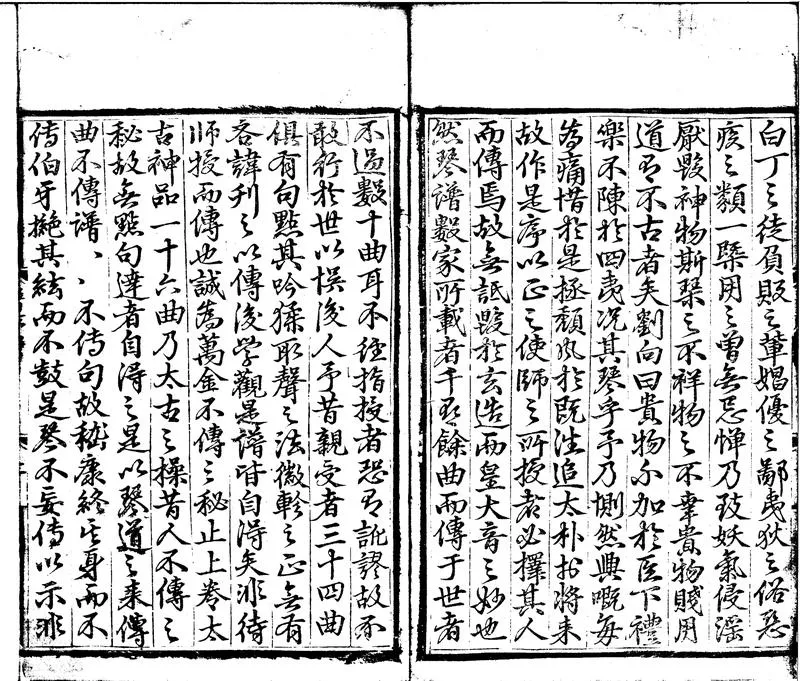 白丁之徒負販之輩娼優之鄙夷狄之俗惡
疾之類一槩用之曽無忌憚乃致妖氣侵淫
厭毀神物斯琴之不祥物之不幸貴物賤用
道之不古者矣劉向曰貴物不加於臣下禮
樂不陳於四夷况其琴乎予乃惻然興嘅每
為痛惜於是拯頽風於既往追太朴於將来
故作是序以正之使師之所授者必擇其人
而傳焉故無詆毀於玄造而皇大音之妙也
然琴譜數家所載者千有餘曲而傳于世者
不過數十曲耳不經指授者恐有訛謬故不
敢行於世以悮後人予昔親受者三十四曲
俱有句點其吟猱取聲之法徽軫之正無有
吝諱刋之以傳後学觀是譜皆自得矣非待
師授而傳也誠為萬金不傳之秘止上卷太
古神品一十六曲乃太古之操昔人不傳之
秘故無點句達者自得之是以琴道之来傳
曲不傳譜、、不傳句故嵇康終其身而不
傳伯牙絶其絃而不鼓是琴不妄傳以示非